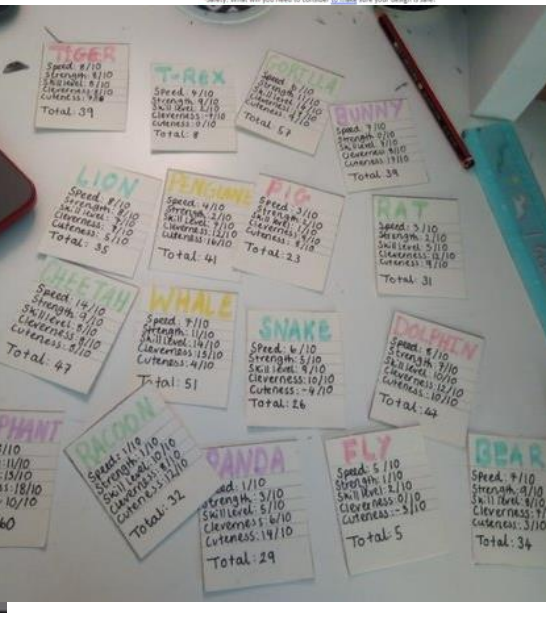 TIGER
Speed: 8/10
Strength: 8/10
Skill level: 8/10
Cleverness: 8/10
Cuteness:
Total: 39
T-REX
Speed: 4/10
Strength: 9/10
Skill level: 2/10
Cleverness: -7/10
Cuteness: 0/10
Total: 8
GORILLA
Speed: 6/10
Strength: 11/10
Skill level:
Cleverness:
Cuteness: 4/10
Total: 57
BUNNY
Speed: 7/10
Strength: 0/10
Skill level:
Cleverness:
Cuteness: 17/10
Total: 39
LION
Speed: 8/10
Strength: 8/10
Skill level:
Cleverness:
Cuteness: 5/10
Total: 35
PENGUINE
Speed: 4/10
Strength: 2/10
Skill level: 7/10
Cleverness: 12/10
Cuteness: 16/10
Total: 41
PIG
Speed: 3/10
Strength: 2/10
Skill level: 1/10
Cleverness:
Cuteness:
Total: 23
RAT
Speed: 3/10
Strength: 2/10
Skill level: 5/10
Cleverness: 12/10
Cuteness: 9/10
Total: 31
CHEETAH
Speed: 14/10
Strength: 9/10
Skill level: 8/10
Cleverness: 8/10
Cuteness: 8/10
Total: 47
WHALE
Speed: 7/10
Strength: 11/10
Skill level: 14/10
Cleverness: 15/10
Cuteness: 4/10
Total: 51
SNAKE
Speed: 6/10
Strength: 5/10
Skill level: 9/10
Cleverness: 10/10
Cuteness: -4/10
Total: 26
DOLPHIN
Speed: 8/10
Strength: 7/10
Skill level: 10/10
Cleverness: 12/10
Cuteness: 10/10
Total: 47
PHANT
/10
: 11/10
: 13/10
ss: 18/10
: 10/10
60
RACOON
Speed: 1/10
Strength: 1/10
Skill level: 10/10
Cleverness: 8/10
Cuteness: 12/10
Total: 32
PANDA
Speed: 1/10
Strength: 3/10
Skill level: 5/10
Cleverness: 6/10
Cuteness: 14/10
Total: 29
FLY
Speed: 5/10
Strength: 1/10
Skill level: 2/10
Cleverness: 0/10
Cuteness: -3/10
Total: 5
BEAR
Speed: 7/10
Strength: 9/10
Skill level: 8/10
Cleverness: 7/
Cuteness: 3/10
Total: 34